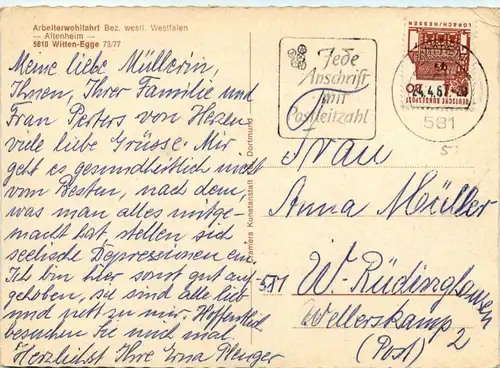 Arbeiterwohlfahrt Bez. westl. Westfalen
— Altenheim —
5810 Witten-Egge 73/77
Meine liebe Müllerin,
Ihnen, Ihrer Familie und
Frau Perters von Herzen
viele liebe Grüsse. Mir
geht es gesundheitlich nicht
vom Besten, nach dem,
was man alles mitge-
macht hat, stellen sich
seelische Depressionen ein.
Ich bin hier sonst gut auf-
gehoben, sie sind alle lieb
und nett zu mir. Hoffentlich
besuchen Sie mich mal.
Herzlichst Ihre Erna
Cramers Kunstanstalt Dortmund
Jede
Anschrift
mit
Postleitzahl
LORSCH/HESSEN
DEUTSCHE BUNDESPOST
24.4.67
581
Frau
Anna Müller
581 W.-Rüdinghausen
Wellerskamp 2
(Post)